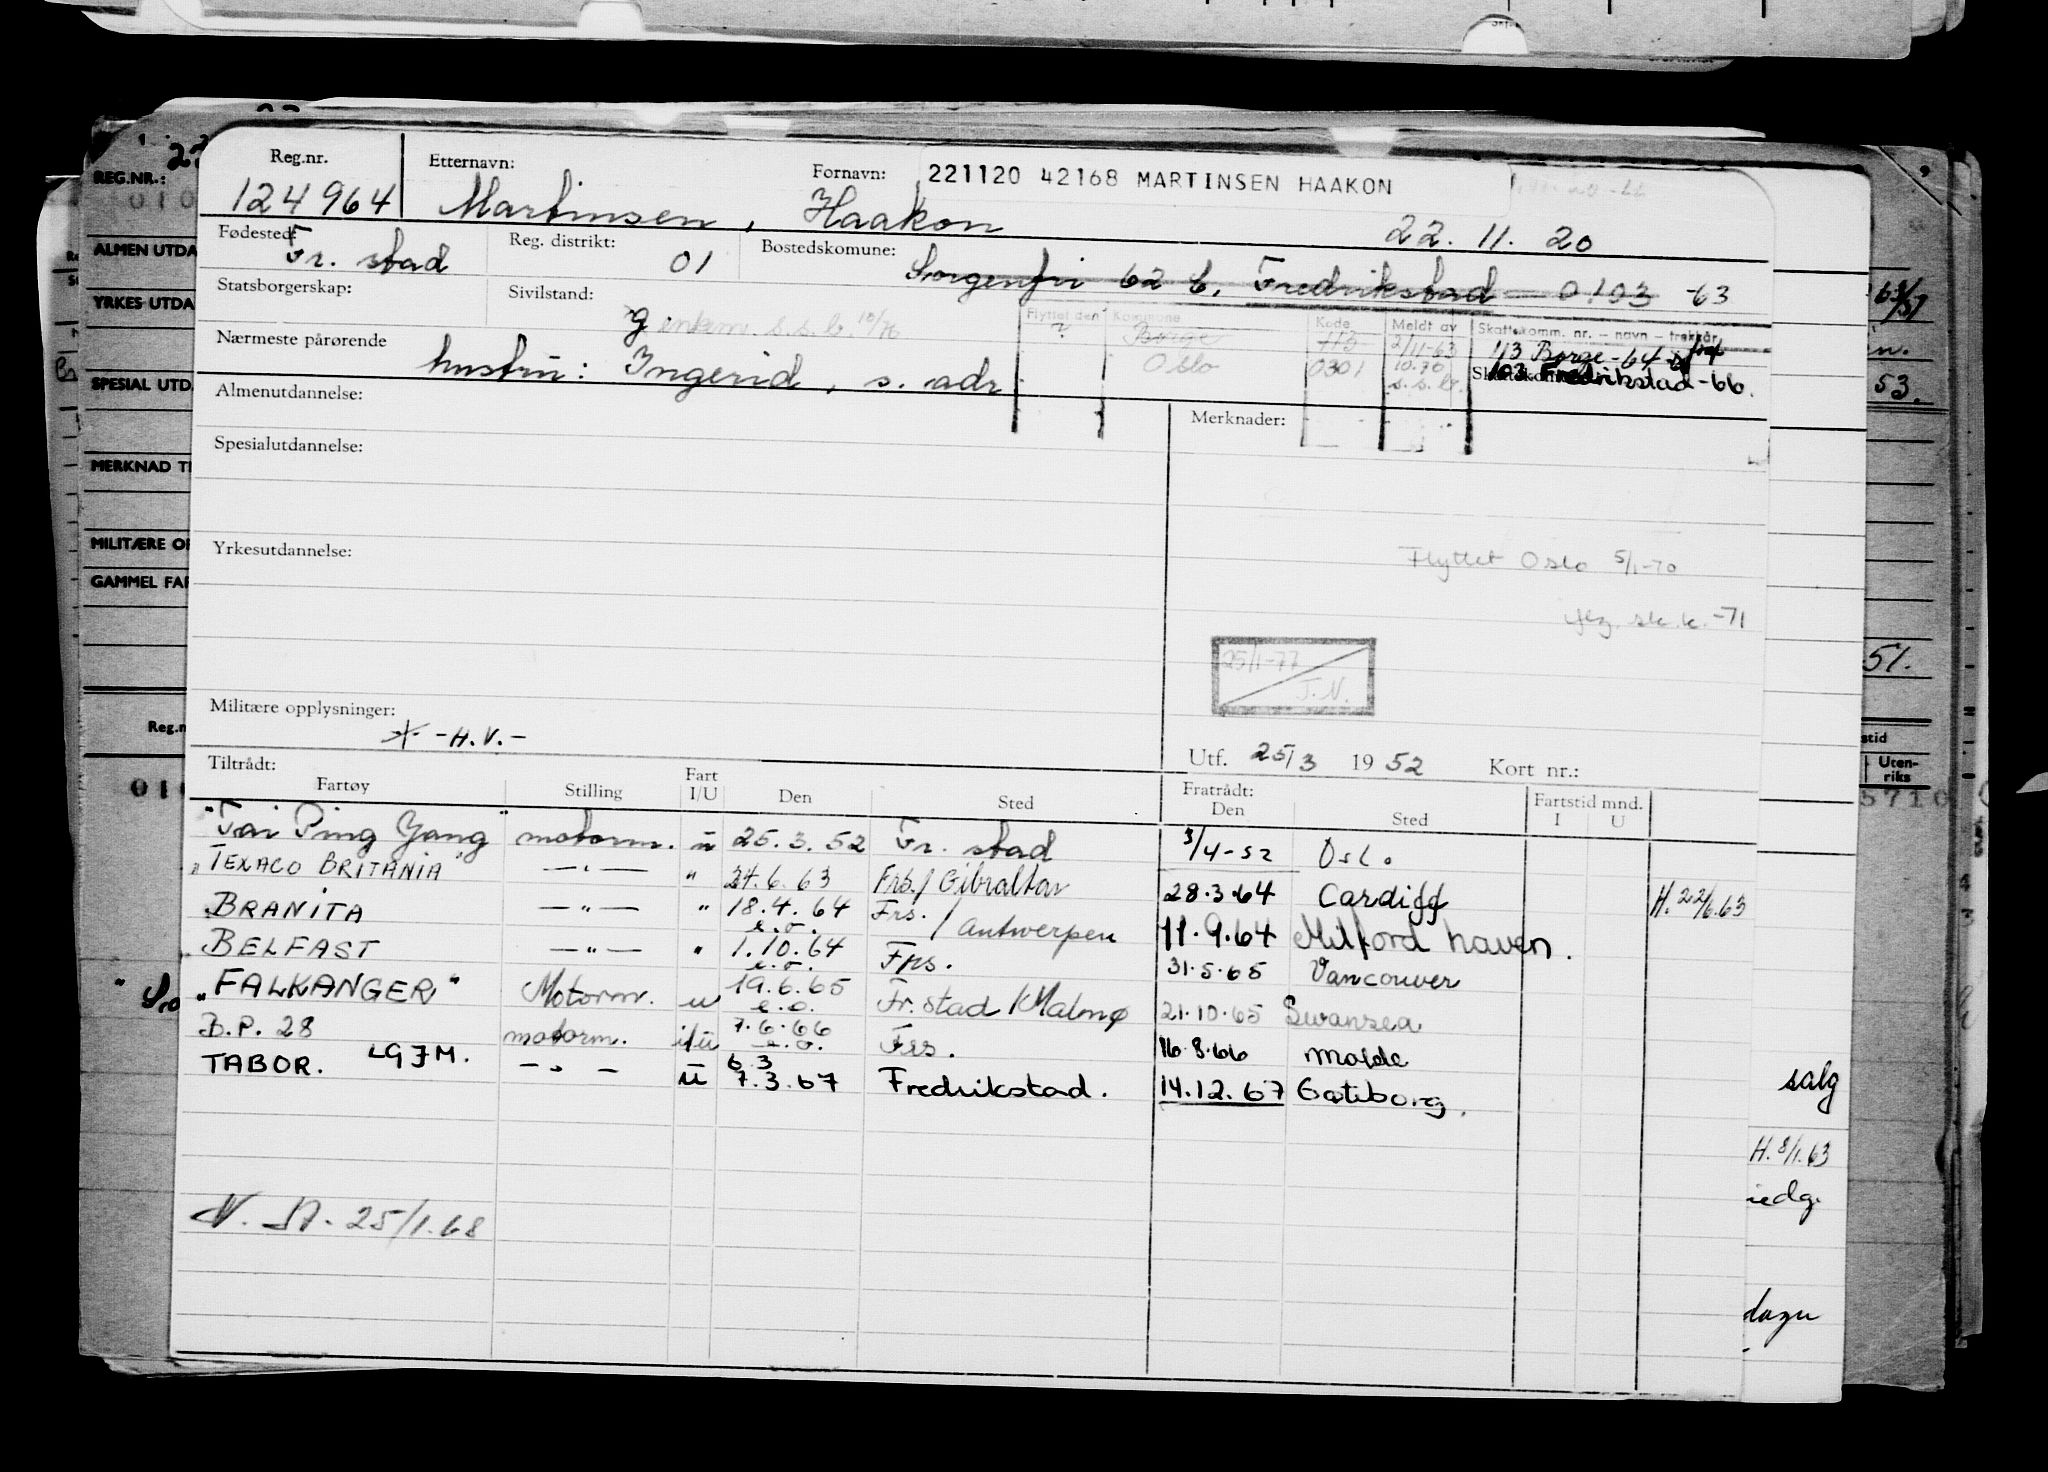 Reg.nr. Etternavn: Fornavn: 221120 42168 MARTINSEN HAAKON
124964 Martinsen, Haakon 22.11.20
Fødested: Fr. stad Reg. distrikt: 01 Bostedskomune: Sorgenfri 62 b, Fredrikstad - 0103 -63
Statsborgerskap: Sivilstand: g enkm. s.s.b. 10/76
Flyttet den Kommune Kode Meldt av Skattekomm. nr. – navn – trekkår
? Borge 113 2/11-63 113 Borge-64
Oslo 0301 10.70 s.s.b. 103 Fredrikstad-66.
Nærmeste pårørende hustru: Ingerid, s. adr
Almenutdannelse: Merknader:
Spesialutdannelse:
Yrkesutdannelse: Flyttet Oslo 5/1-70
sk.k. -71
25/1-77
J.N.
Militære opplysninger: -H.V.-
Utf. 25/3 1952 Kort nr.:
Tiltrådt: Fratrådt:
Fartøy Stilling Fart I/U Den Sted Den Sted Fartstid mnd. I U
"Tai Ping Yang" motorm. u 25.3.52 Fr. stad 3/4-52 Oslo
"TEXACO BRITANIA" —"— " 24.6.63 Frs./Gibraltar 28.3.64 Cardiff H. 22/6.63
BRANITA —"— " 18.4.64 e.o. Frs. / Antwerpen 11.9.64 Milford haven.
BELFAST —"— " 1.10.64 e.o. Frs. 31.5.65 Vancouver
"FALKANGER" Motorm. u 19.6.65 e.o. Fr.stad/Malmø 21.10.65 Swansea
B.P. 28 motorm. i/u 7.6.66 e.o. Frs. 16.8.66 Molde
TABOR. LGJM. —"— u 6.3 7.3.67 Fredrikstad. 14.12.67 Gøteborg.
25/1.68
REG.NR.:
010
ALMEN UTDA
YRKES UTDA
SPESIAL UTD.
53.
MERKNAD T
MILITÆRE OP
GAMMEL FAR
51.
Reg.n
stid
Uten-
riks
01
5710
salg
H. 8/1.63
iedg.